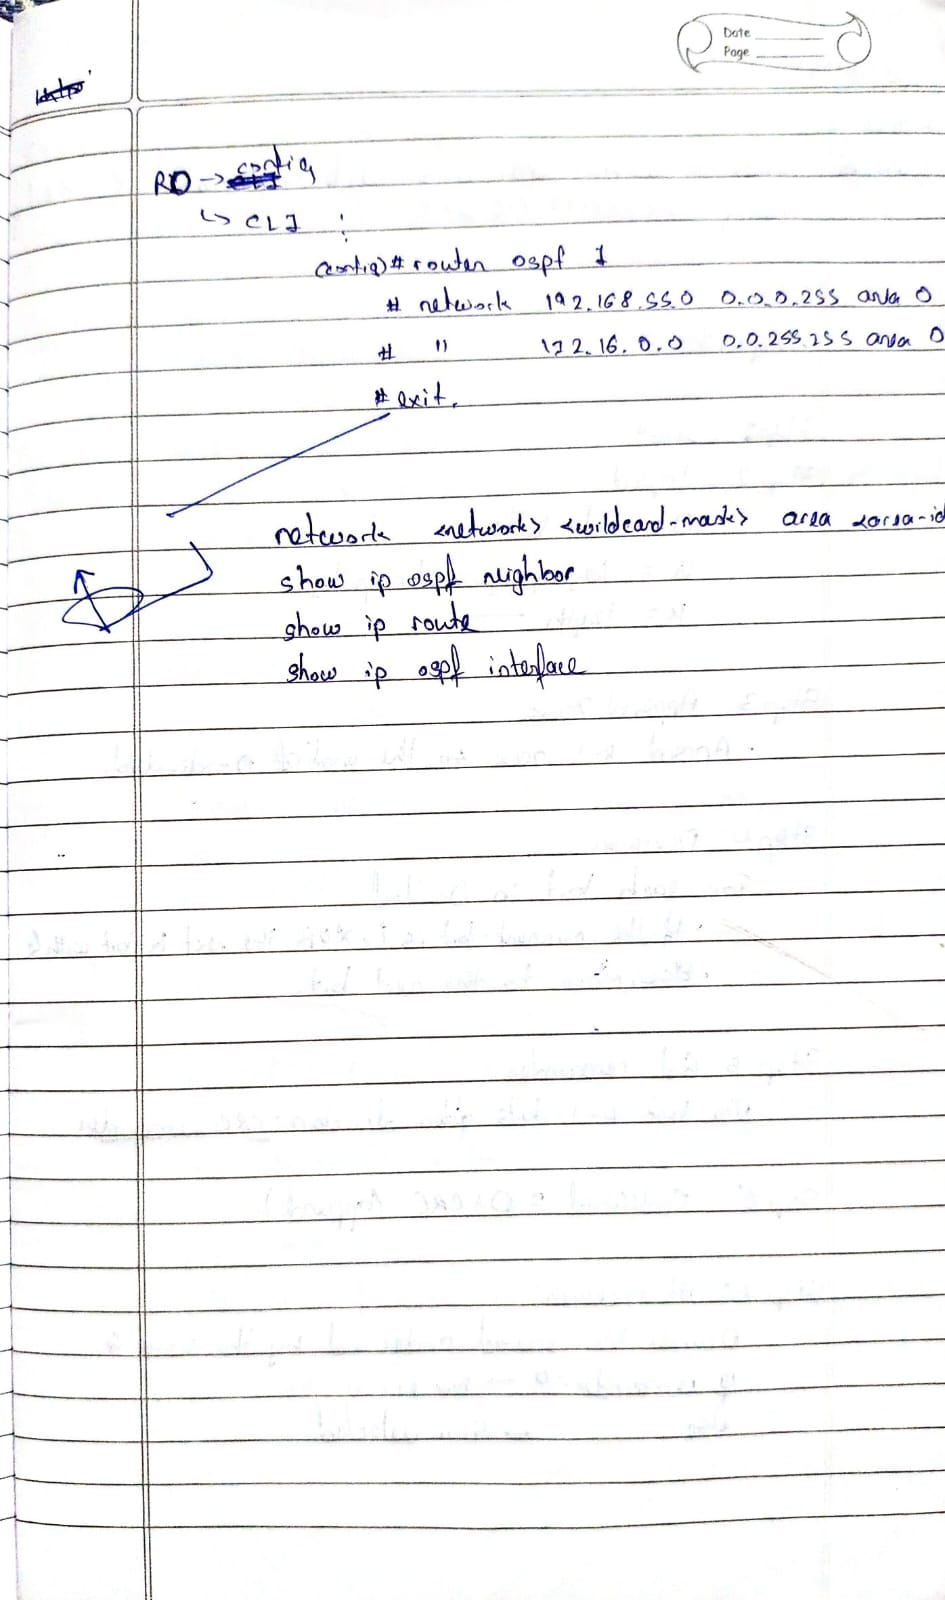 Date
Page
R0 → config
↳ CLI :
(config)# router ospf 1
# network 192.168.55.0 0.0.0.255 area 0
# " 172.16.0.0 0.0.255.255 area 0
# exit.
network <network> <wildcard-mask> area <area-id
show ip ospf neighbor
show ip route
show ip ospf interface